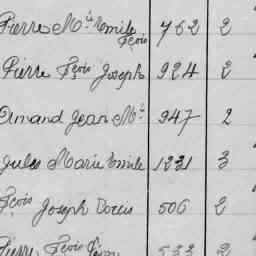 Pierre Mie Emile Fçois 762 2
Pierre Fçois Joseph 924 2
Armand Jean Mie 947 2
Jules Marie Emile 1221 3
Fçois Joseph Louis 506 2
Pierre Fçois 533 2